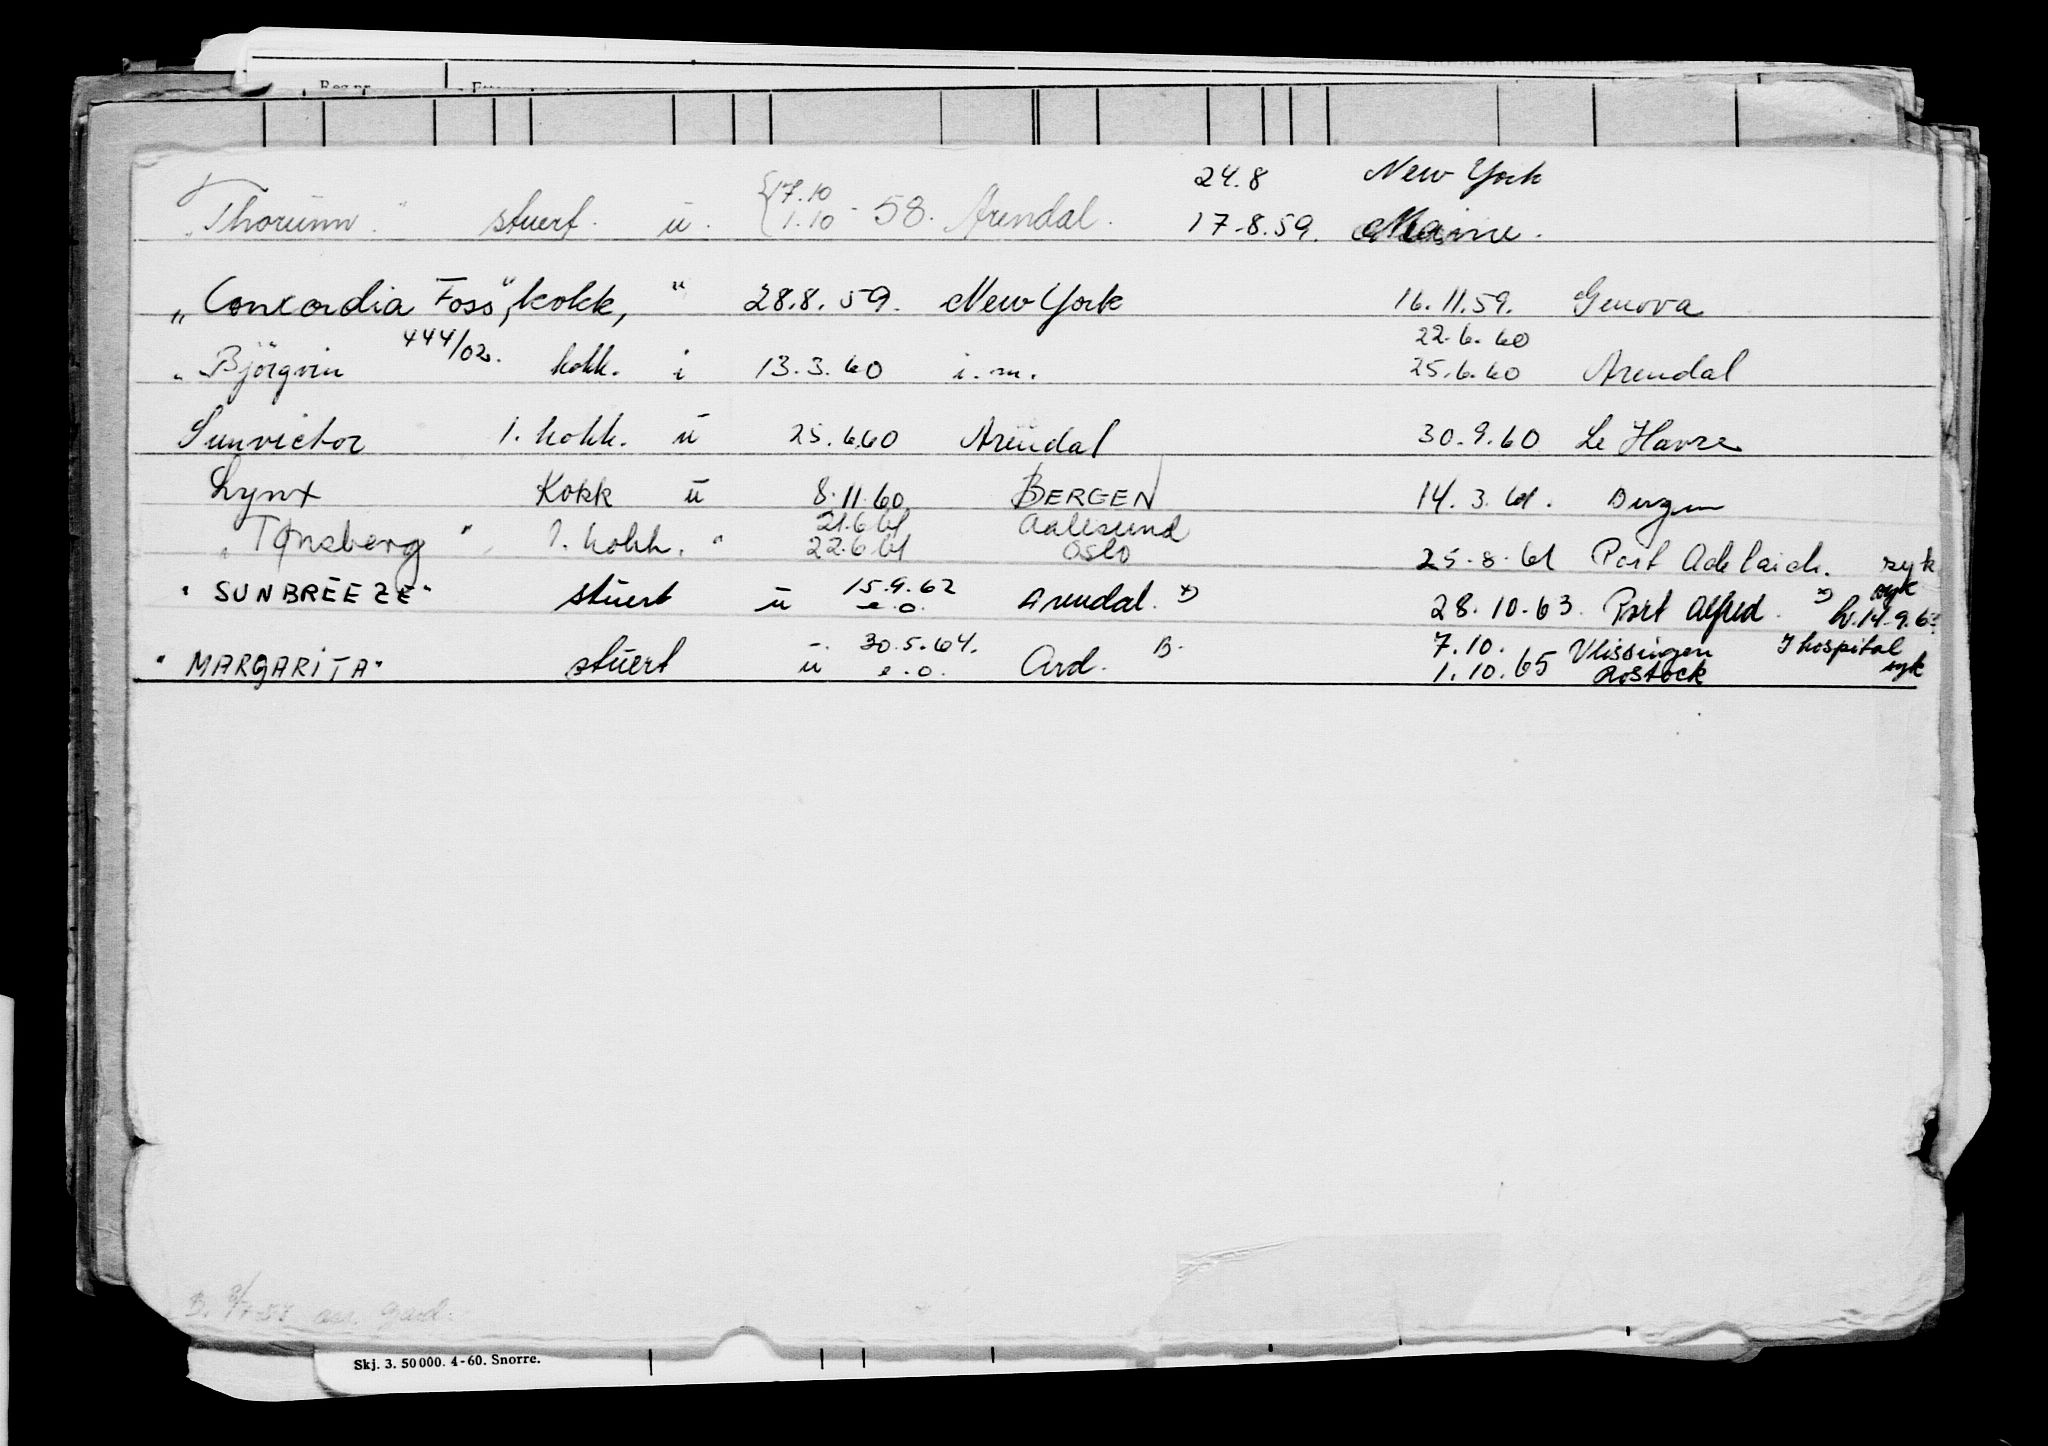 24.8 New York
"Thorunn" stuert. u. {17.10 1.10 - 58. Arendal. 17.8.59. Maine.
"Concordia Foss", kokk, " 28.8.59. New York 16.11.59. Genova
444/02. 22.6.60
" Björgvin kokk. i 13.3.60 i.m. 25.6.60 Arendal
Sunvictor 1. kokk. u 25.6.60 Arendal 30.9.60 Le Havre
Lynx Kokk u 8.11.60 BERGEN 14.3.61. Bergen
21.6.61 Aalesund
"Tønsberg" 1. kokk. " 22.6.61 Oslo 25.8.61 Port Adelaide. syk
"SUNBREEZE" stuert u 15.9.62 e.o. Arendal. x) 28.10.63 Port Alfred. x) syk
30.5.64. 7.10. Vlissingen I hospital
"MARGARITA" stuert u e.o. Ard. B. 1.10.65 Rostock syk
Skj. 3. 50000. 4-60. Snorre.